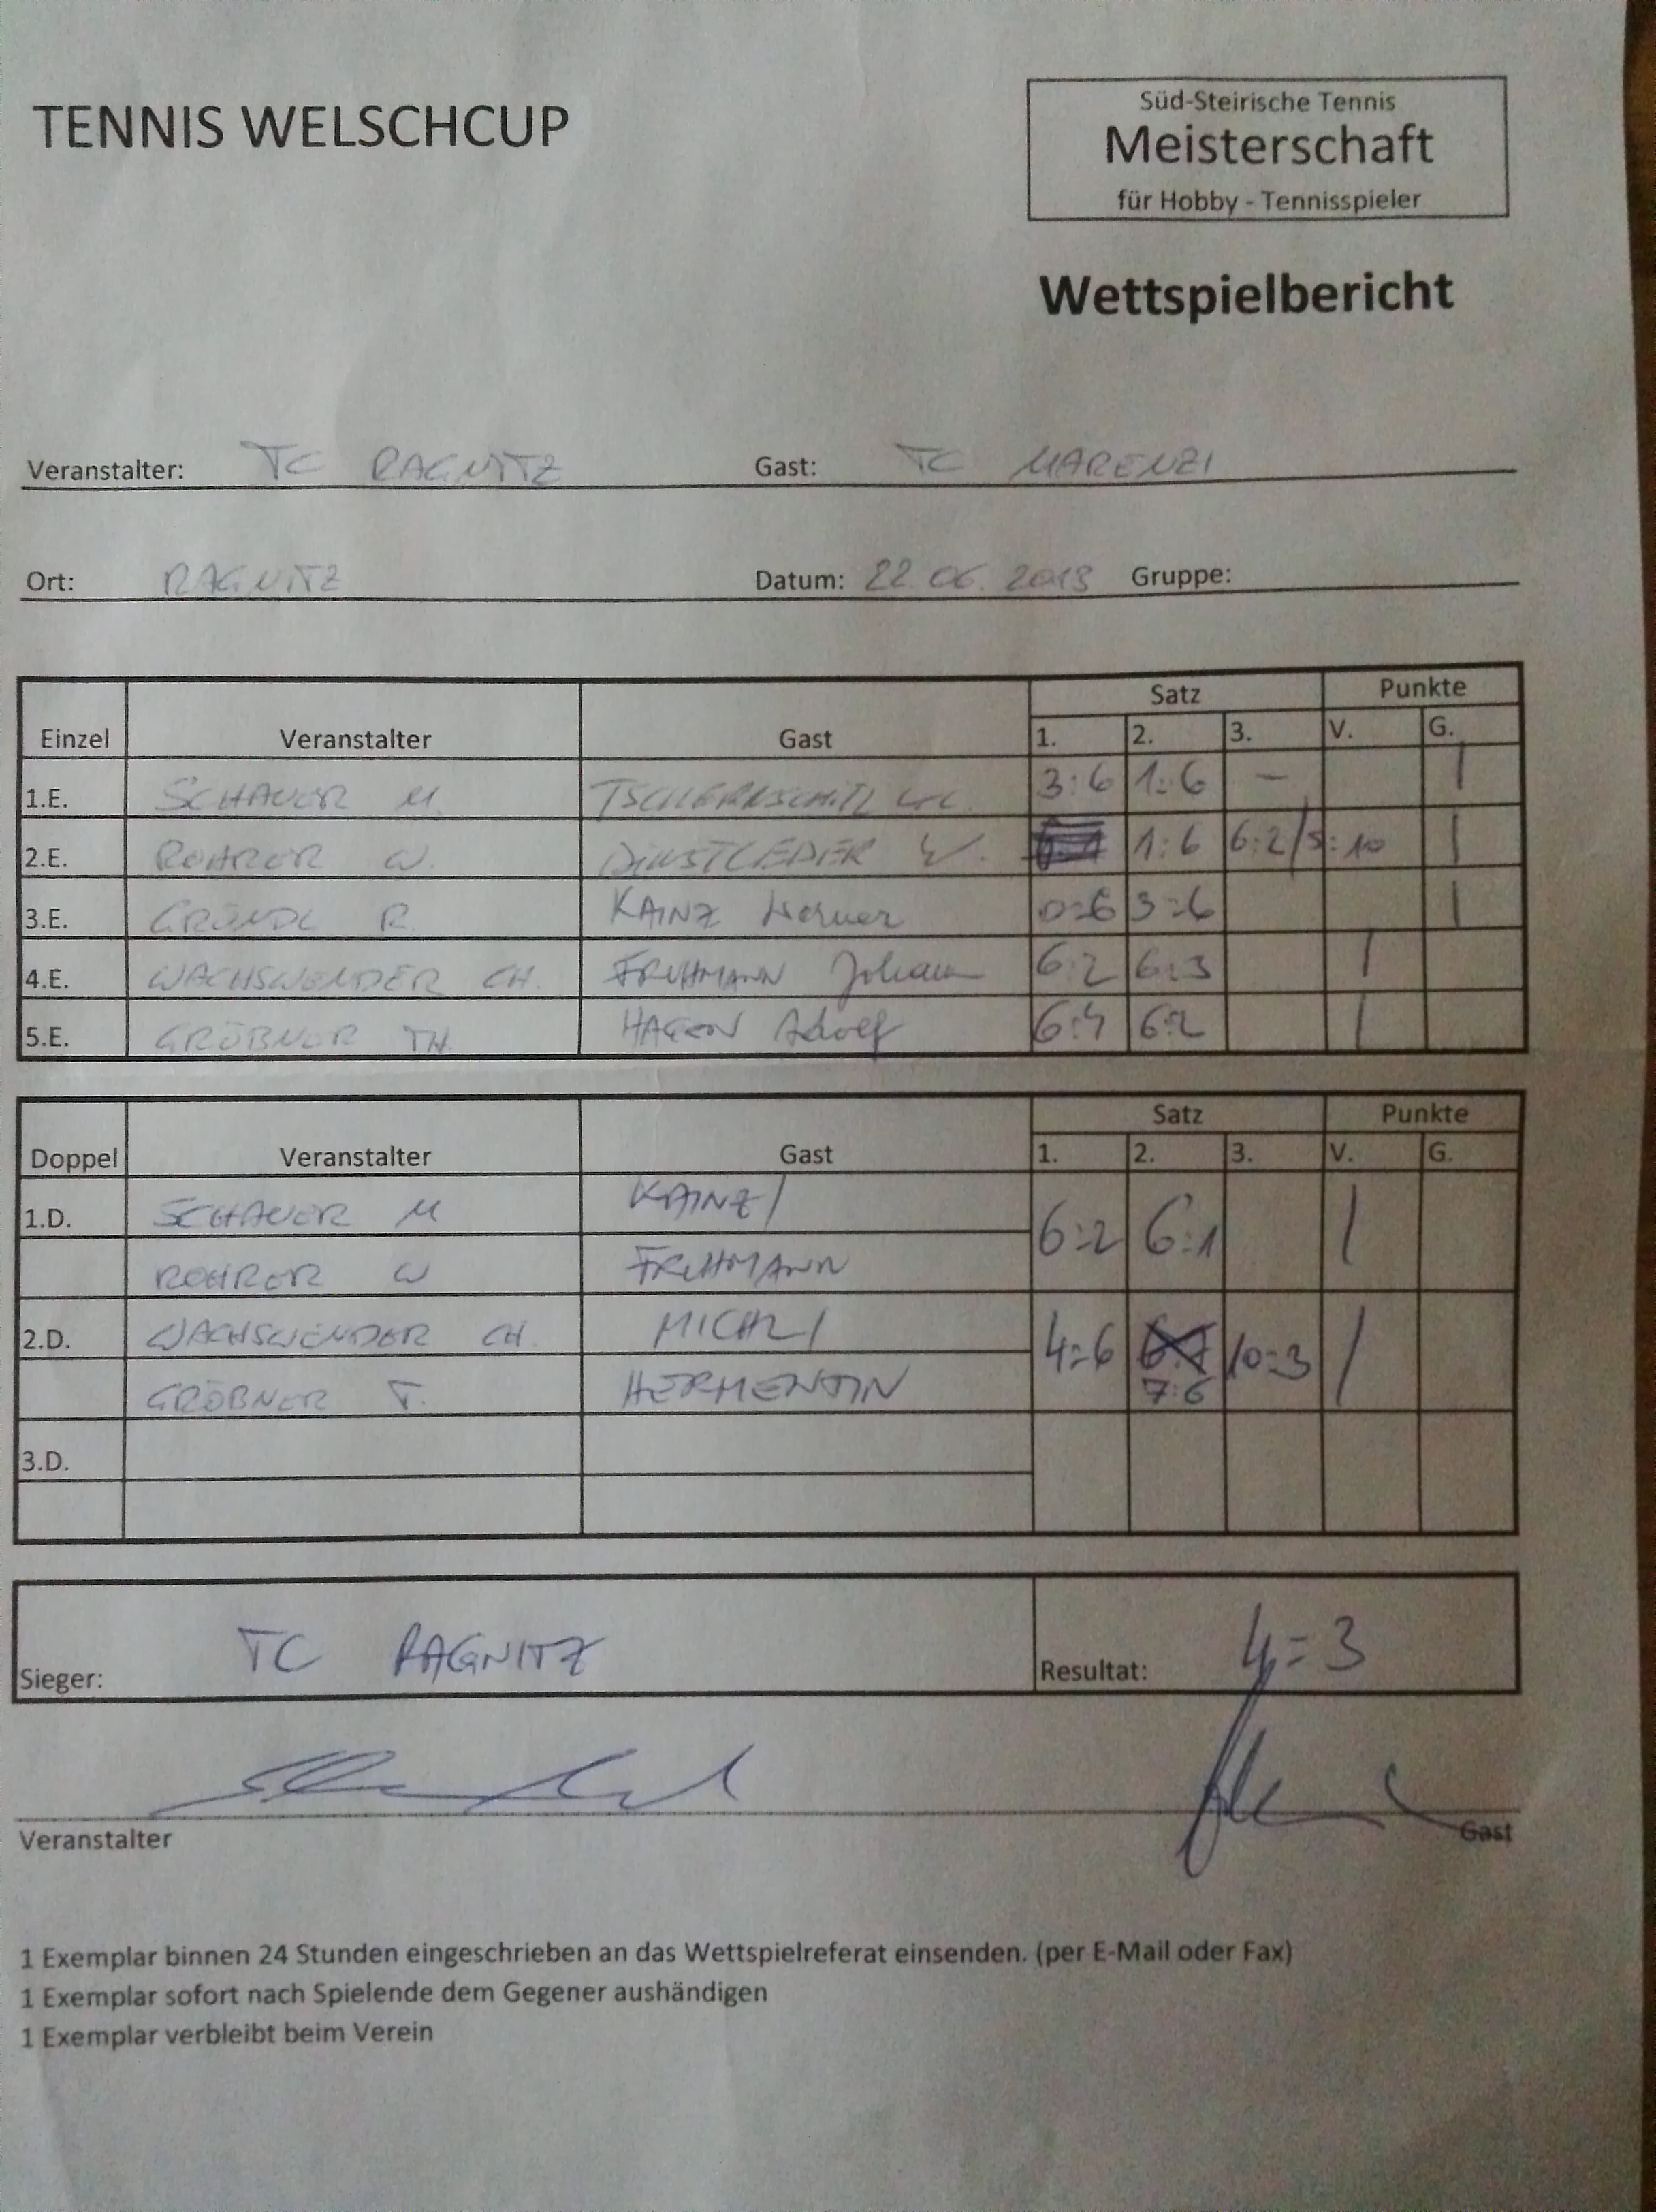 TENNIS WELSCHCUP
Süd-Steirische Tennis
Meisterschaft
für Hobby - Tennisspieler
Wettspielbericht
Veranstalter: TC RAGNITZ Gast: TC MARENZI
Ort: RAGNITZ Datum: 22.06.2013 Gruppe:
Satz Punkte
Einzel Veranstalter Gast 1. 2. 3. V. G.
1.E. SCHAUER M. 3:6 1:6 – |
2.E. ROHRER W. DINSTLEDER W. 1:6 6:2/5:10 |
3.E. GRÖNDL R. KAINZ Werner 0:6 3:6 |
4.E. WACHSWENDER CH. FRUHMANN Johann 6:2 6:3 |
5.E. GRÖBNER TH. HAGEN Adolf 6:4 6:2 |
Satz Punkte
Doppel Veranstalter Gast 1. 2. 3. V. G.
1.D. SCHAUER M KAINZ/ 6:2 6:1 |
ROHRER W FRUHMANN
2.D. WACHSWENDER CH. MICHL/ 4:6 7:6 10:3 |
GRÖBNER T. HERMENTIN
3.D.
Sieger: TC RAGNITZ Resultat: 4:3
Veranstalter Gast
1 Exemplar binnen 24 Stunden eingeschrieben an das Wettspielreferat einsenden. (per E-Mail oder Fax)
1 Exemplar sofort nach Spielende dem Gegener aushändigen
1 Exemplar verbleibt beim Verein